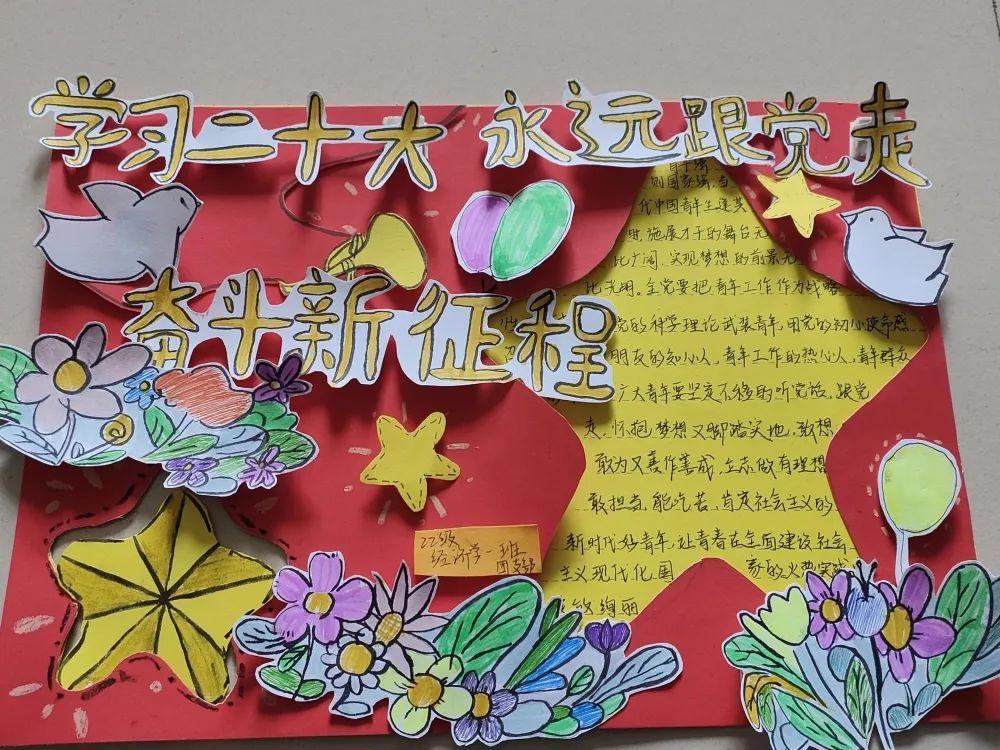 学习二十大 永远跟党走
奋斗新征程
青年强
则国家强。当
代中国青年生逢其
时,施展才干的舞台无
比广阔,实现梦想的前景无
比光明。全党要把青年工作作为战略
党的科学理论武装青年,用党的初心使命感
朋友的知心人,青年工作的热心人,青年群众
广大青年要坚定不移的听党话,跟党
走,怀抱梦想又脚踏实地,敢想
敢为又善作善成,立志做有理想
敢担当,能吃苦,肯
新时代好青年,让青春在全面建设社会
主义现代化国 家的火热实践
绚丽
22级
经济学一班
团支部